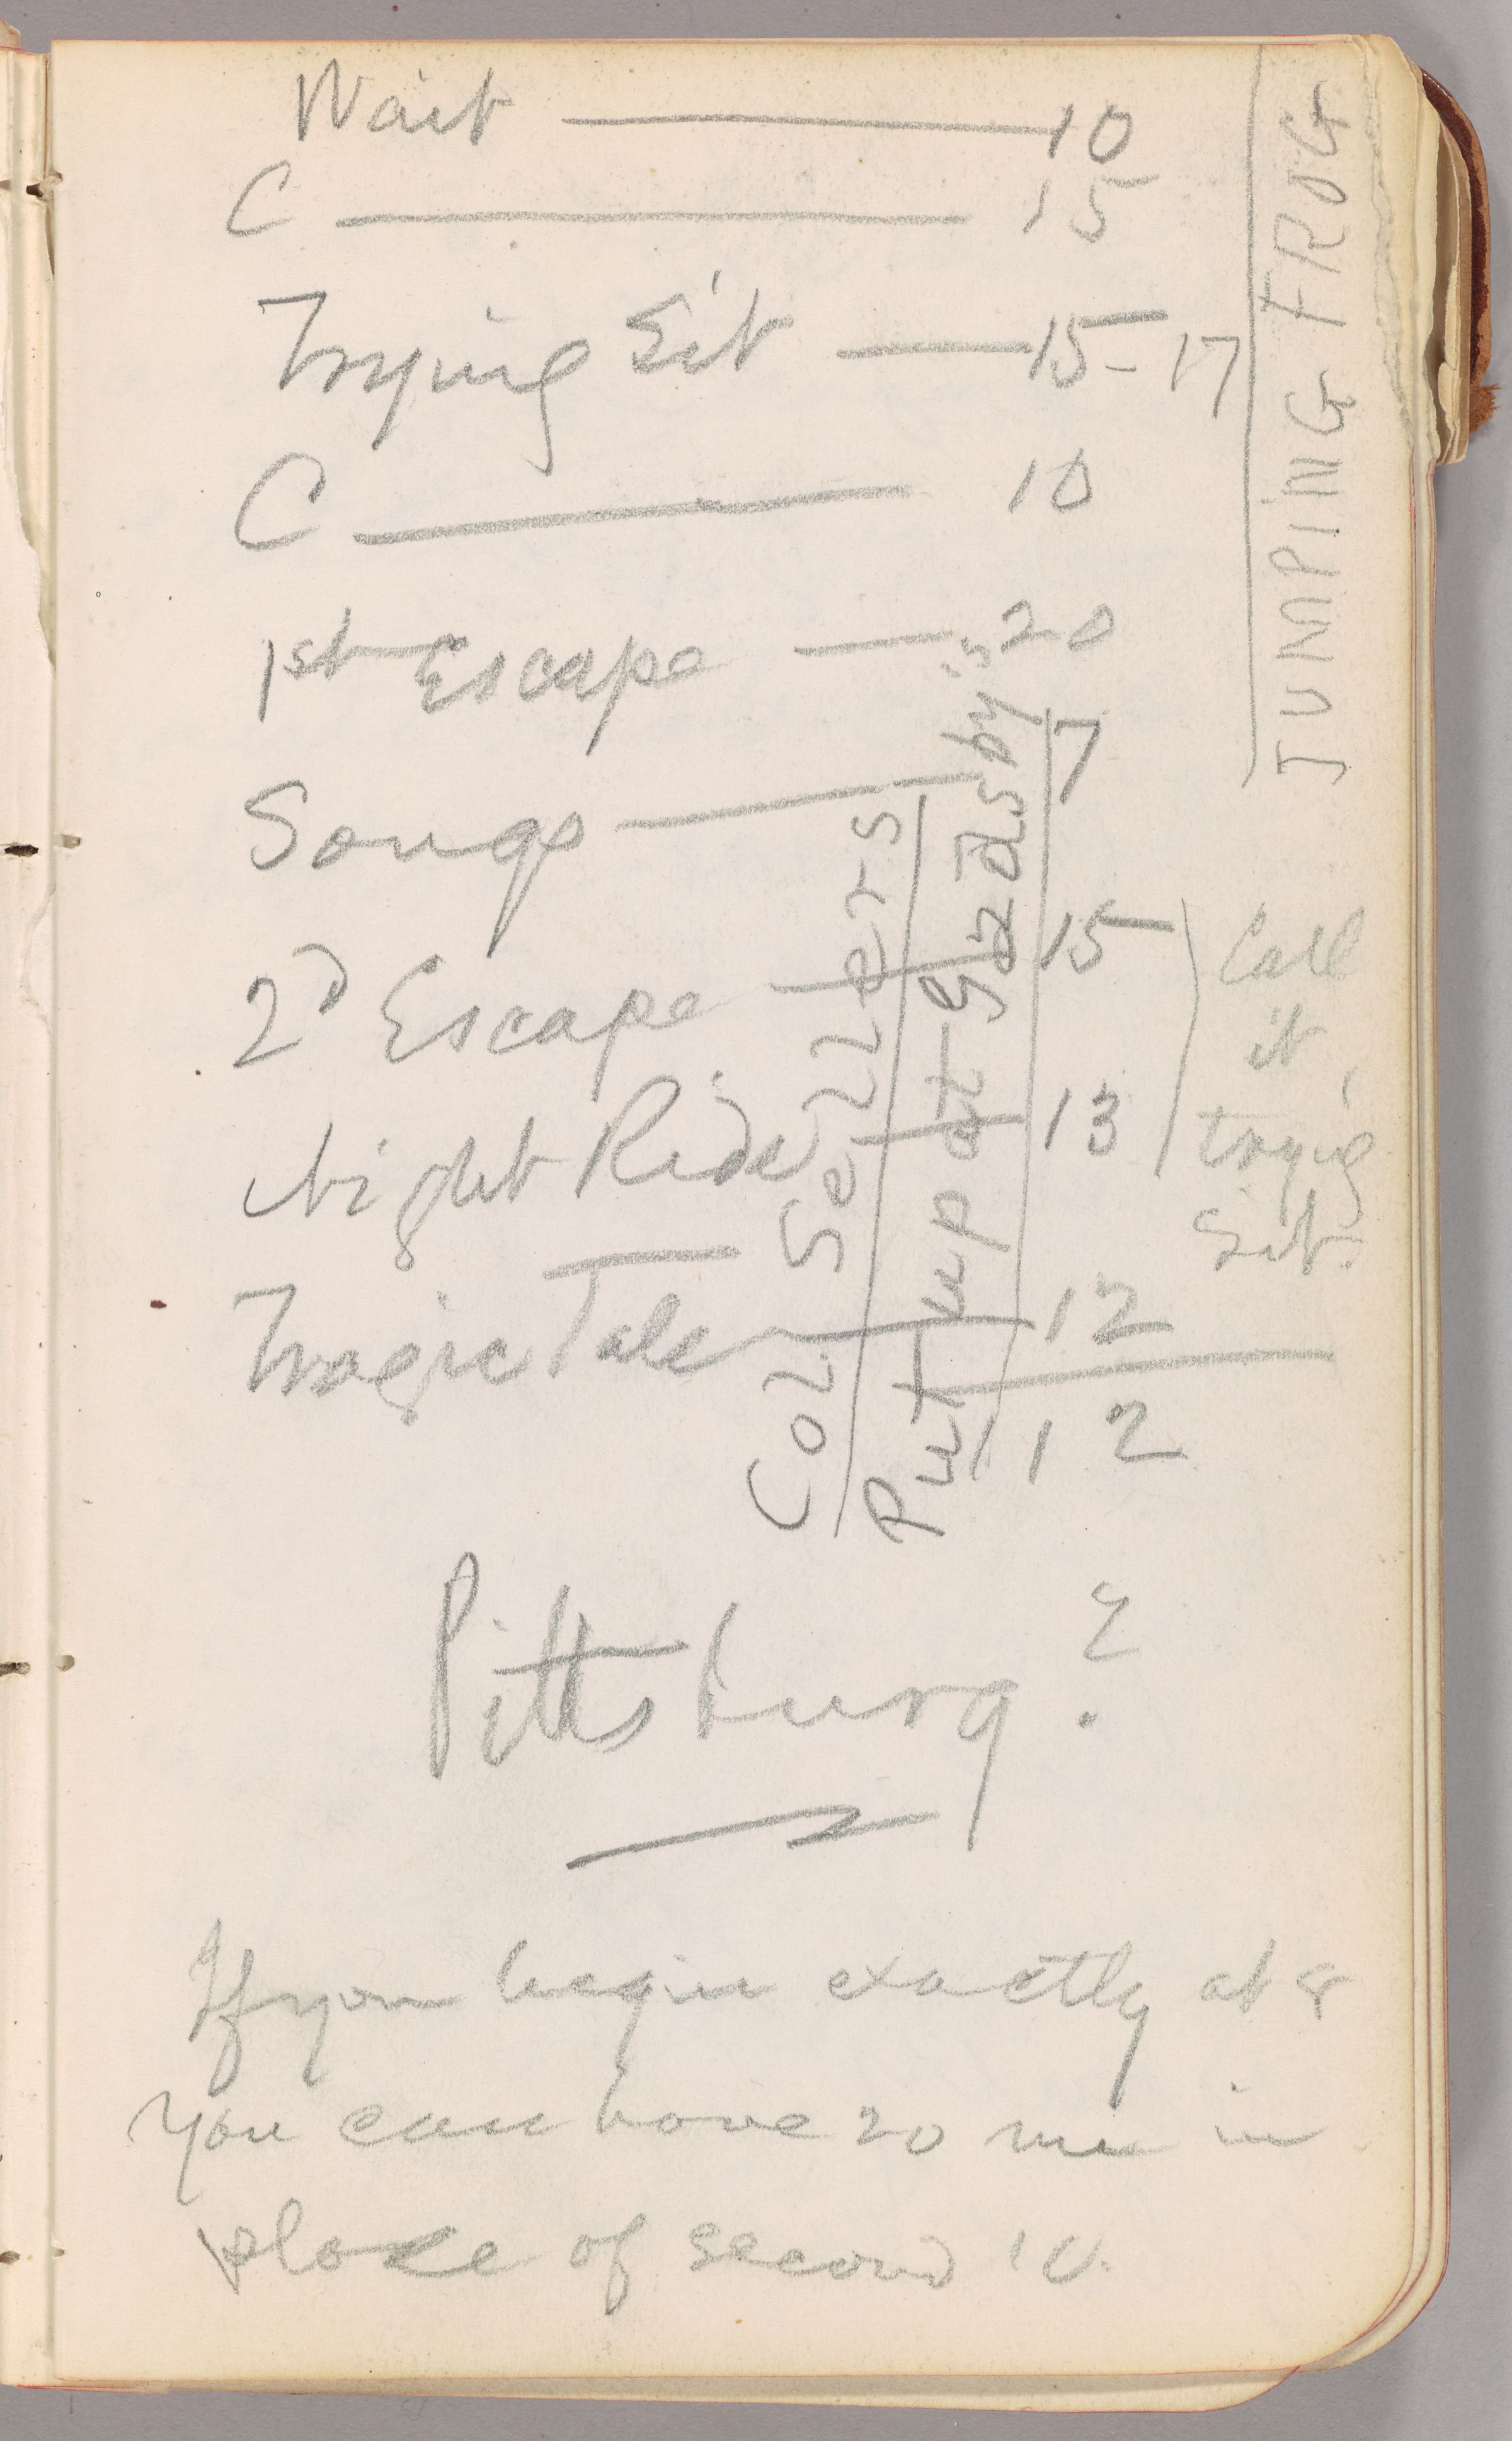 Wait — 10
C — 15
Trying Sit — 15-17
C — 10
1st Escape — 20
Songs — 7
2d Escape — 15
Night Ride — 13
Tragic Tale — 12
12
Call
it
tryig
Sit.
JUMPING FROG
Col. Sellers
Put up at Gadsby's
Pittsburg?
If you begin exactly at 8
you can have 20 m in
place of second 10.